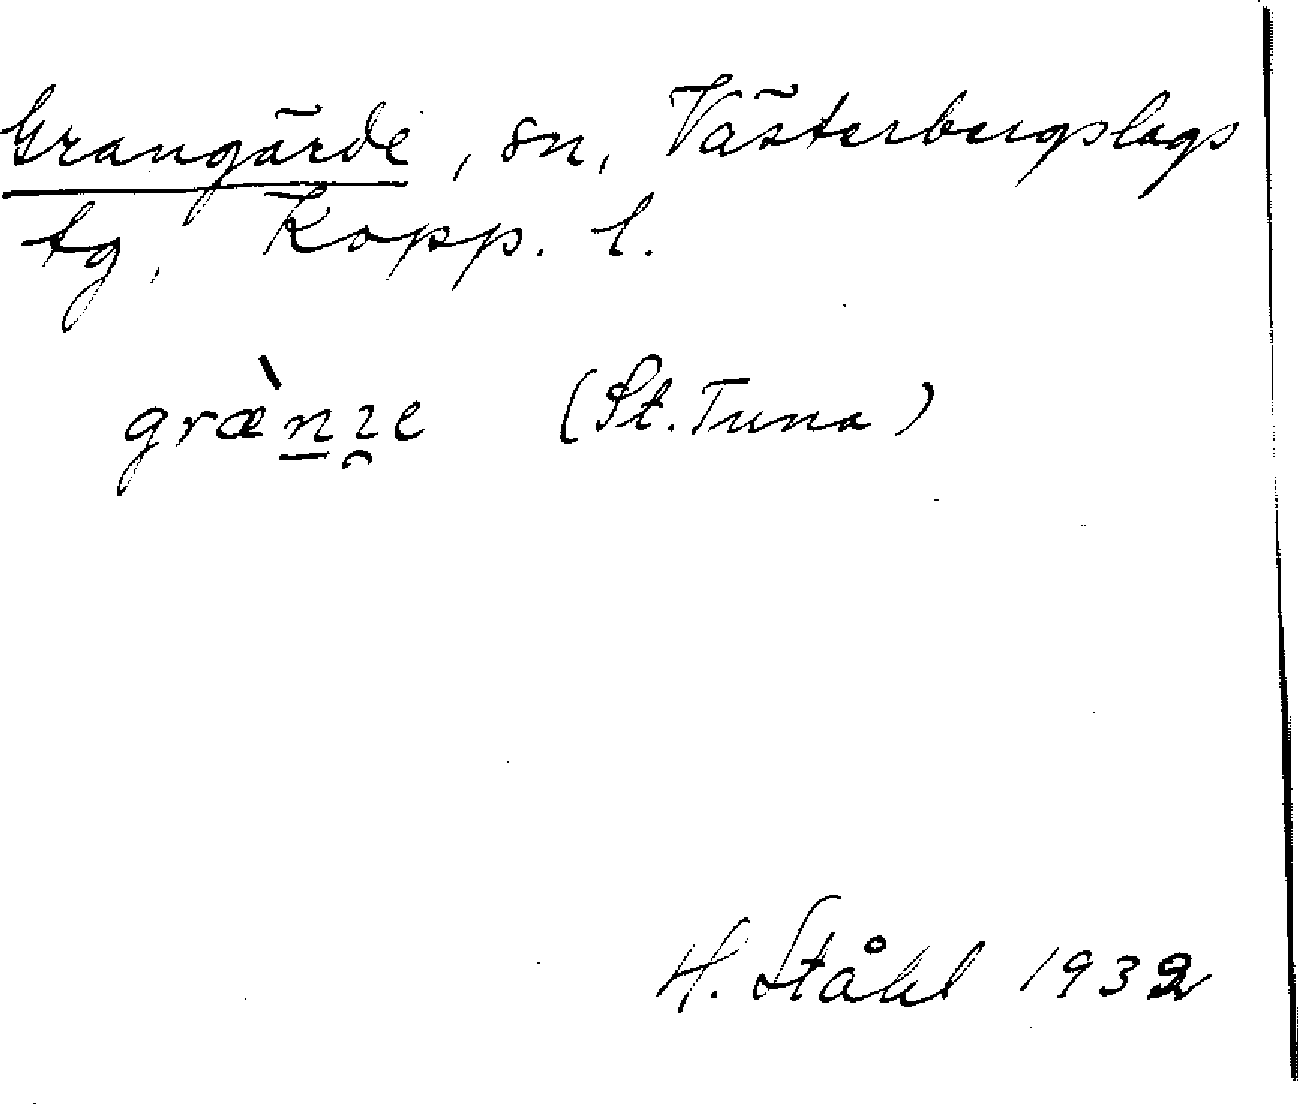 Grangärde, sn, Västerbergslags
tg, Kopp. l.
græ̀n̲ɿ̯e (St. Tuna)
H. Ståhl 1932